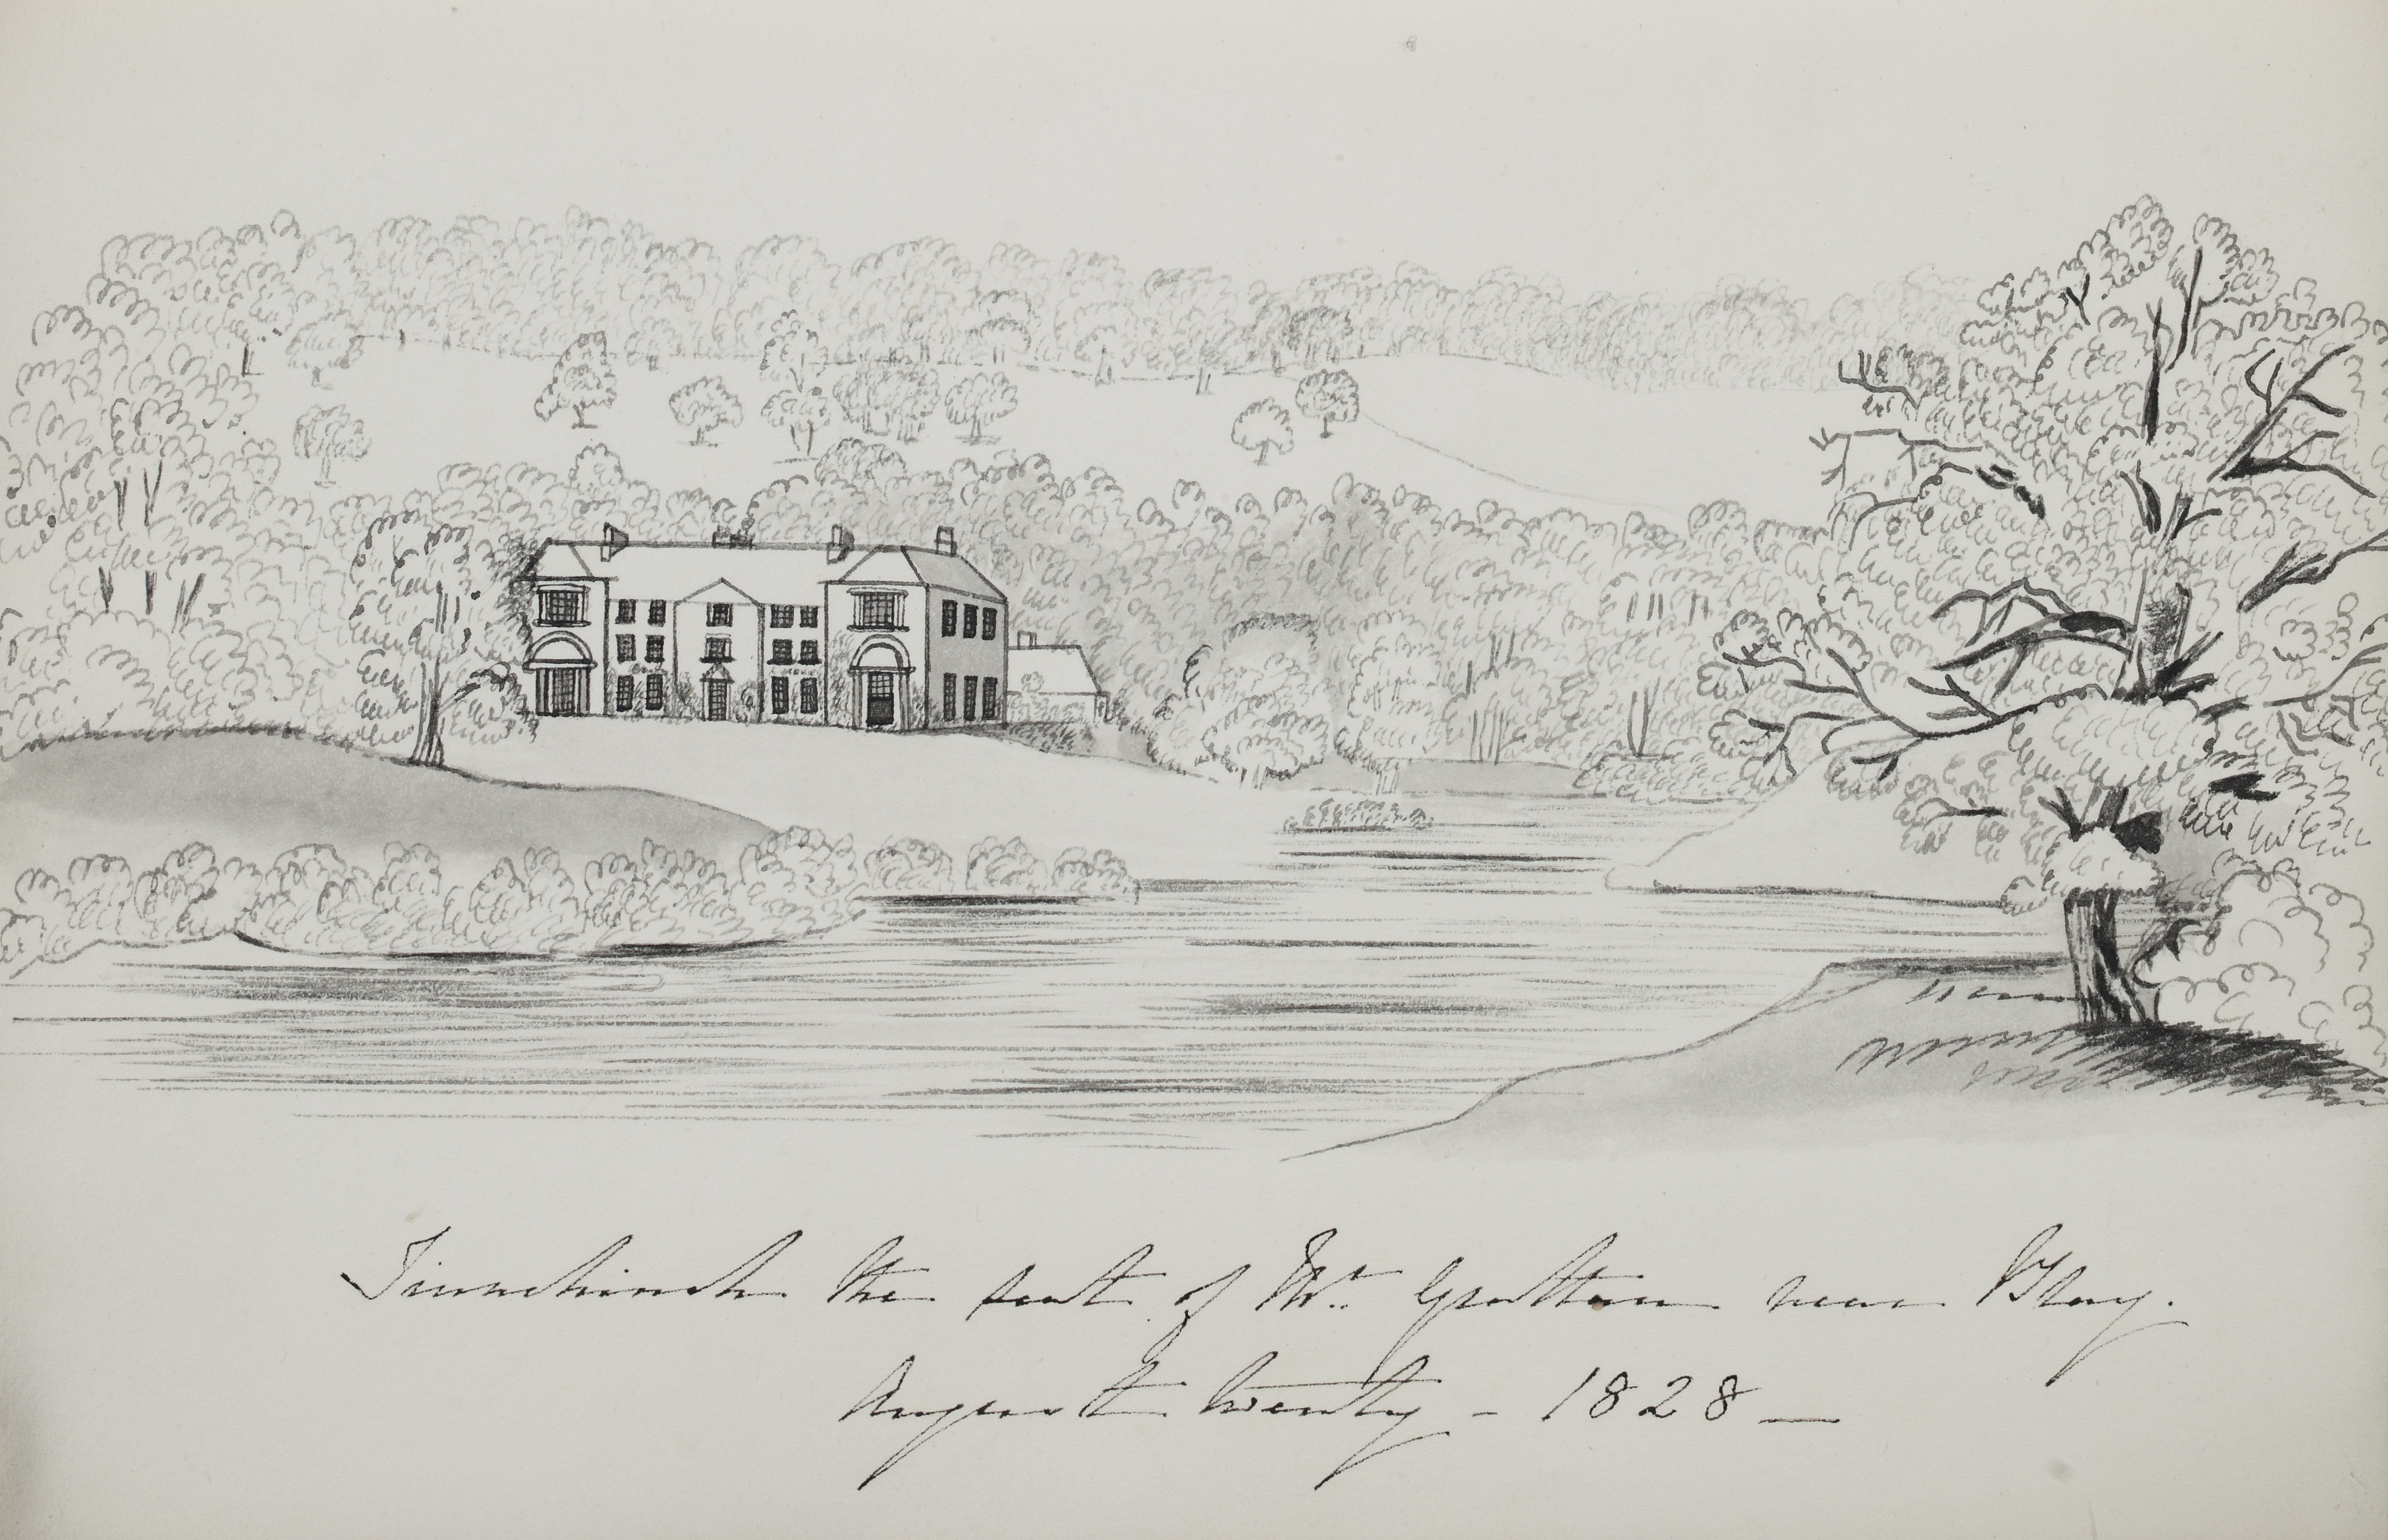 Tinnehinch the seat of Mr. Grattan near Bray.
August twenty - 1828 —